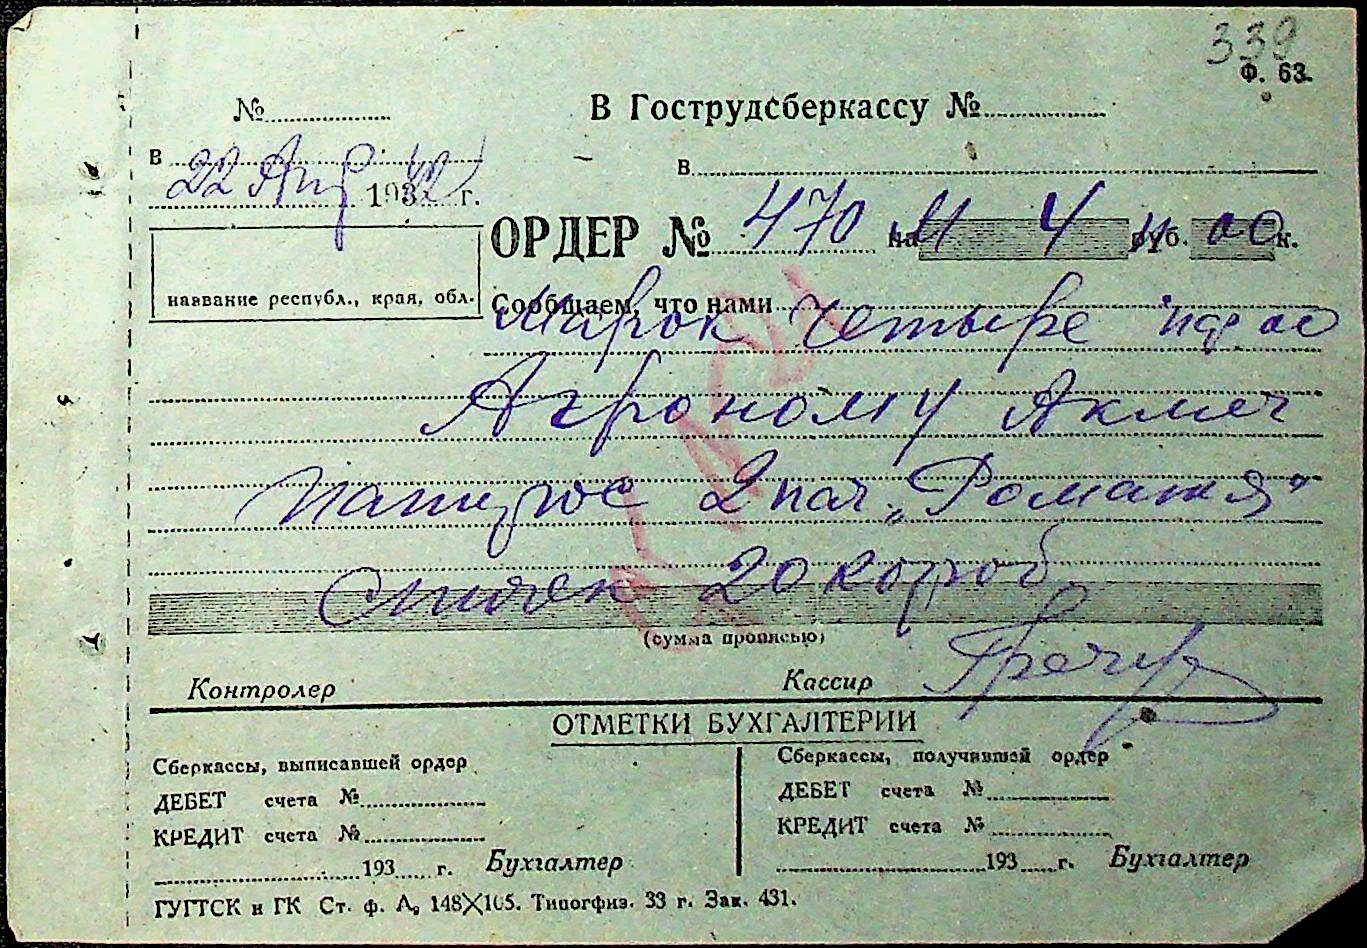 339
Ф. 63.
№
В Гострудсберкассу №
в 22 Апр 1942 г.
в
ОРДЕР № 470 на М 4 п. руб. 00 к.
название республ., края, обл.
Сообщаем, что нами
Марок четыре пф 00
Агроному Акмеч
Папирос 2 пач. „Романтя"
Спичек 20 короб.
(сумма прописью)
Контролер
Кассир
ОТМЕТКИ БУХГАЛТЕРИИ
Сберкассы, выписавшей ордер
Сберкассы, получившей ордер
ДЕБЕТ счета №
ДЕБЕТ счета №
КРЕДИТ счета №
КРЕДИТ счета №
193 г. Бухгалтер
193 г. Бухгалтер
ГУГТСК и ГК Ст. ф. А, 148×105. Типогфиз. 33 г. Зак. 431.